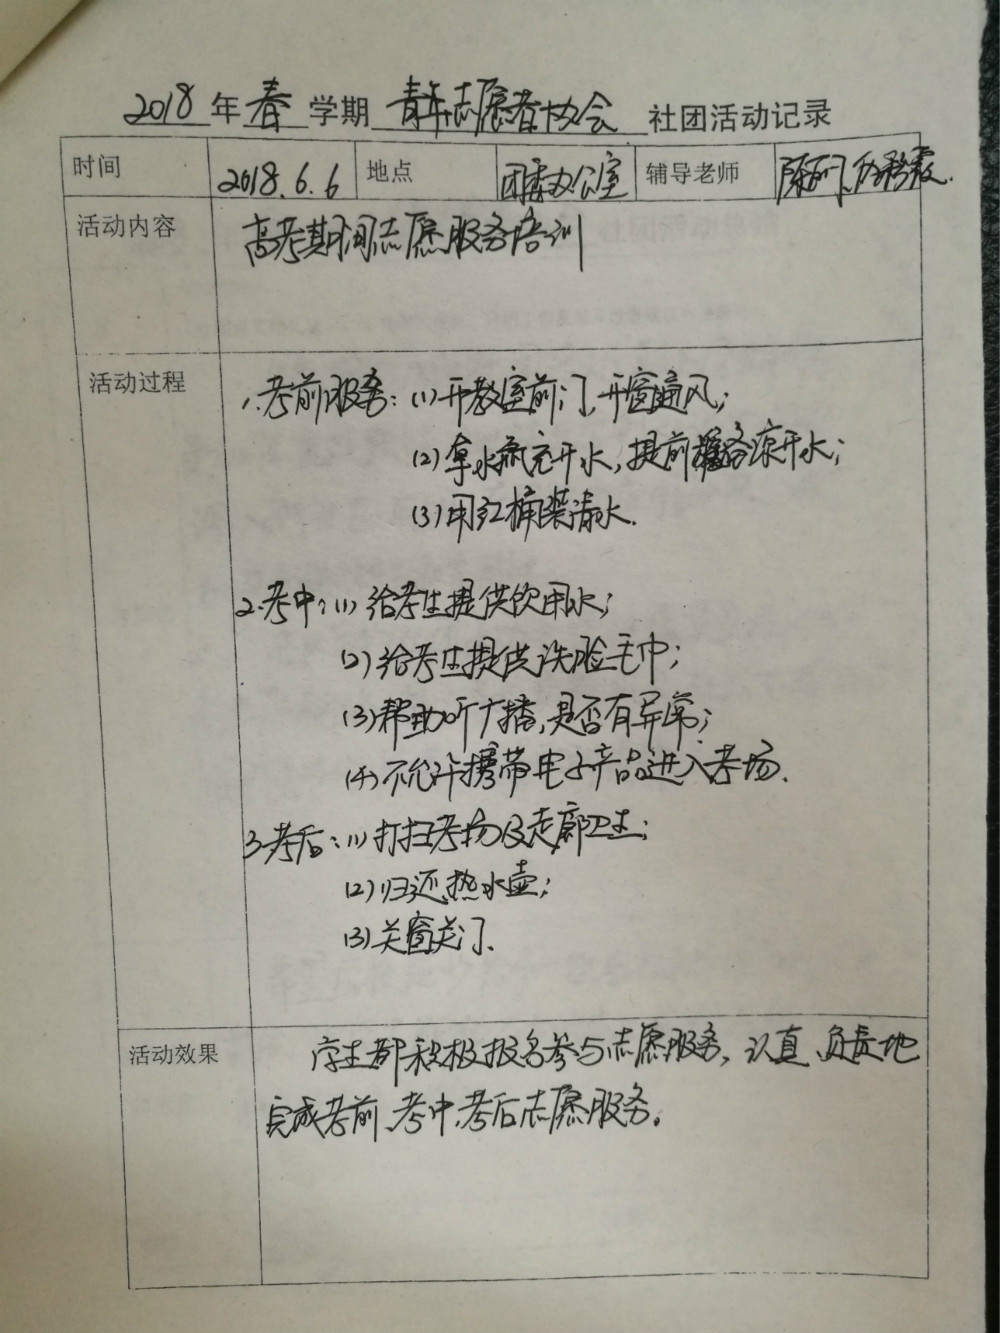 2018 年 春 学期 青年志愿者协会 社团活动记录
时间 2018.6.6 地点 团委办公室 辅导老师
活动内容 高考期间志愿服务培训
活动过程 1.考前服务：(1)开教室前门、开窗通风；
(2)拿水瓶充开水，提前准备凉开水；
(3)用红桶装清水.
2.考中：(1)给考生提供饮用水；
(2)给考生提供洗脸毛巾；
(3)帮助听广播，是否有异常；
(4)不允许携带电子产品进入考场.
3.考后：(1)打扫考场及走廊卫生；
(2)归还热水壶；
(3)关窗关门.
活动效果 学生都积极报名参与志愿服务，认真、负责地
完成考前、考中、考后志愿服务。